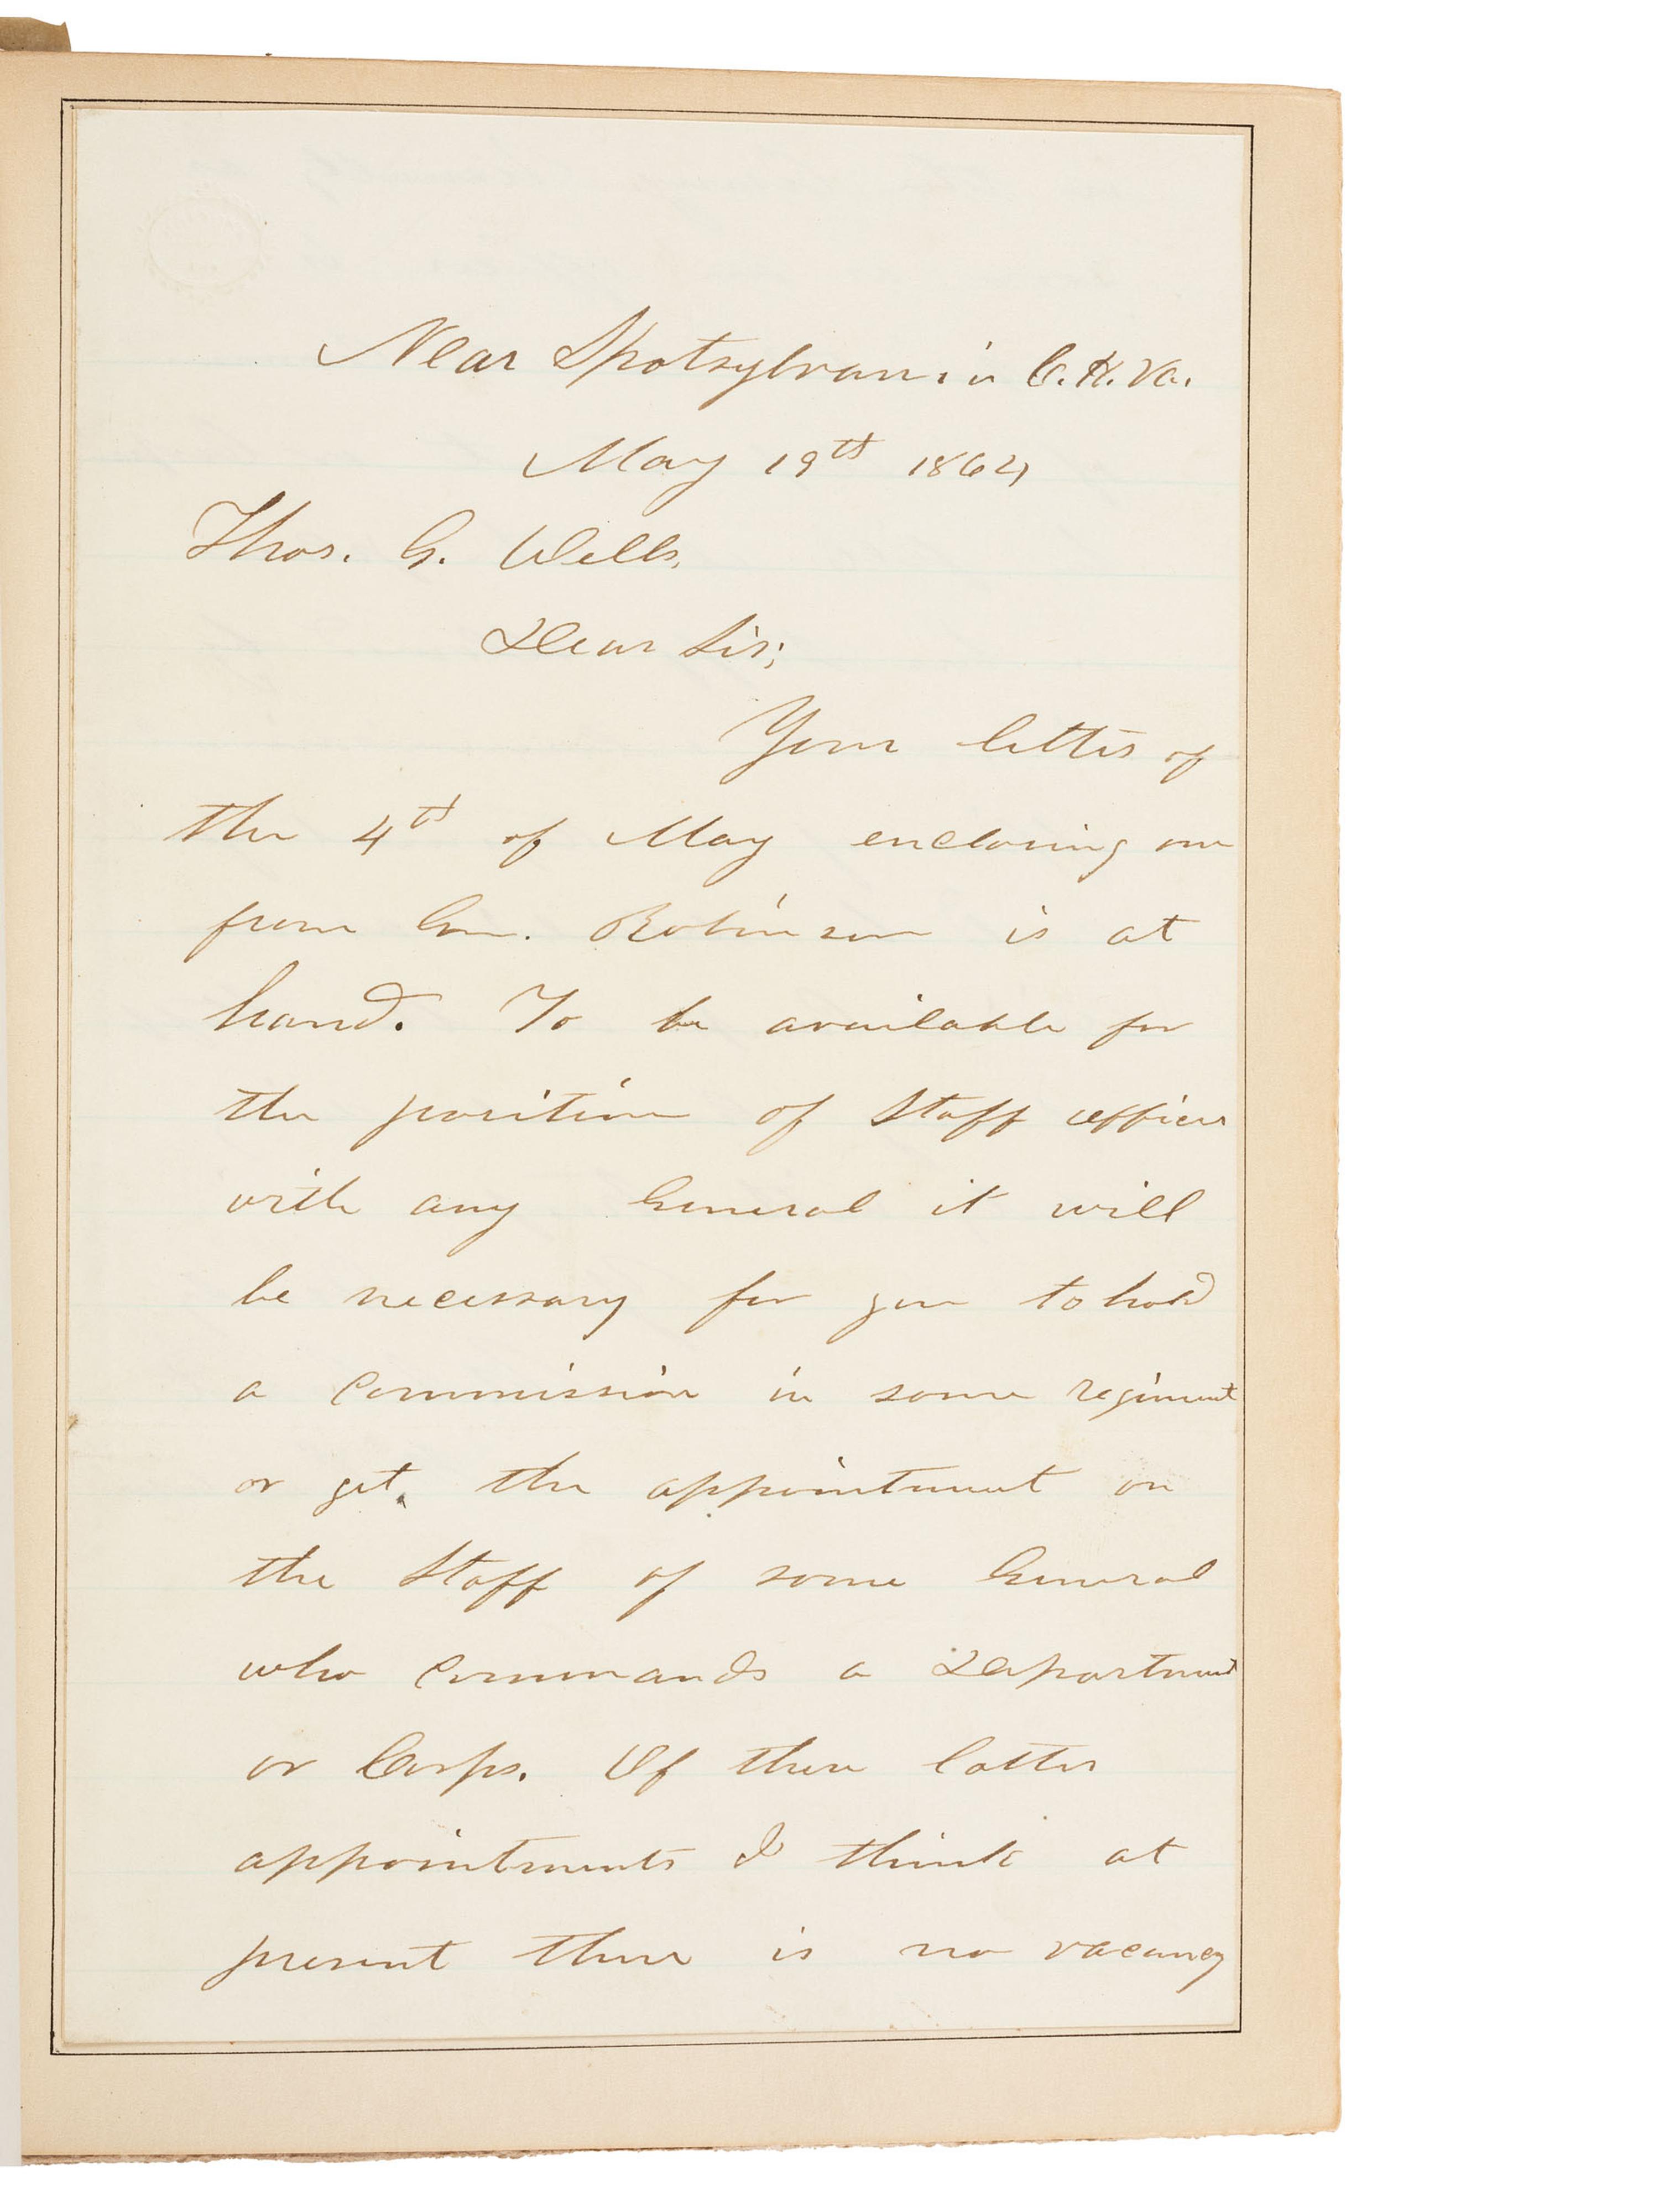 Near Spotsylvania C.H. Va.
May 19th 1864
Thos. G. Wells,
Dear Sir;
Your letter of
the 4th of May enclosing one
from Gen. Robinson is at
hand. To be available for
the position of Staff officer
with any General it will
be necessary for you to hold
a commission in some regiment
or get the appointment on
the Staff of some General
who commands a Department
or Corps. Of these latter
appointments I think at
present there is no vacancy